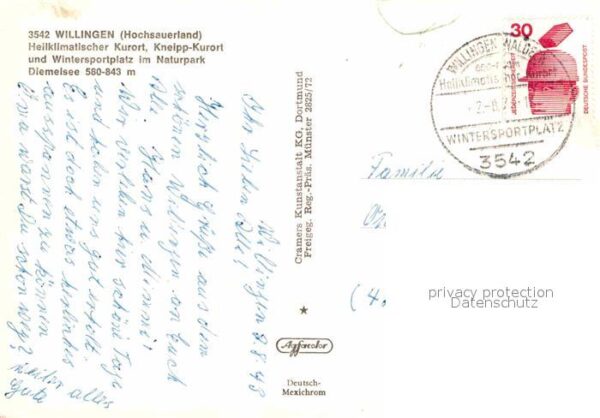 3542 WILLINGEN (Hochsauerland)
Heilklimatischer Kurort, Kneipp-Kurort
und Wintersportplatz im Naturpark
Diemelsee 580-843 m
Willingen
Ihr Lieben Alle!
Herzlich Grüße aus dem
schönen Willingen an Euch
Alle
Wir verleben hier schöne Tage
und haben uns gut erholt.
Es ist doch etwas herrliches
ausspannen zu können
warst Du schon weg?
alles
Gute
Cramers Kunstanstalt KG, Dortmund
Freigeg. Reg.-Präs. Münster 2825/72
Agfacolor
Deutsch-
Mexichrom
30
JEDERZEIT SICHERHEIT
DEUTSCHE BUNDESPOST
WILLINGEN WALDECK
Heilklimatischer Kurort
WINTERSPORTPLATZ
3542
Familie
(4.
privacy protection
Datenschutz